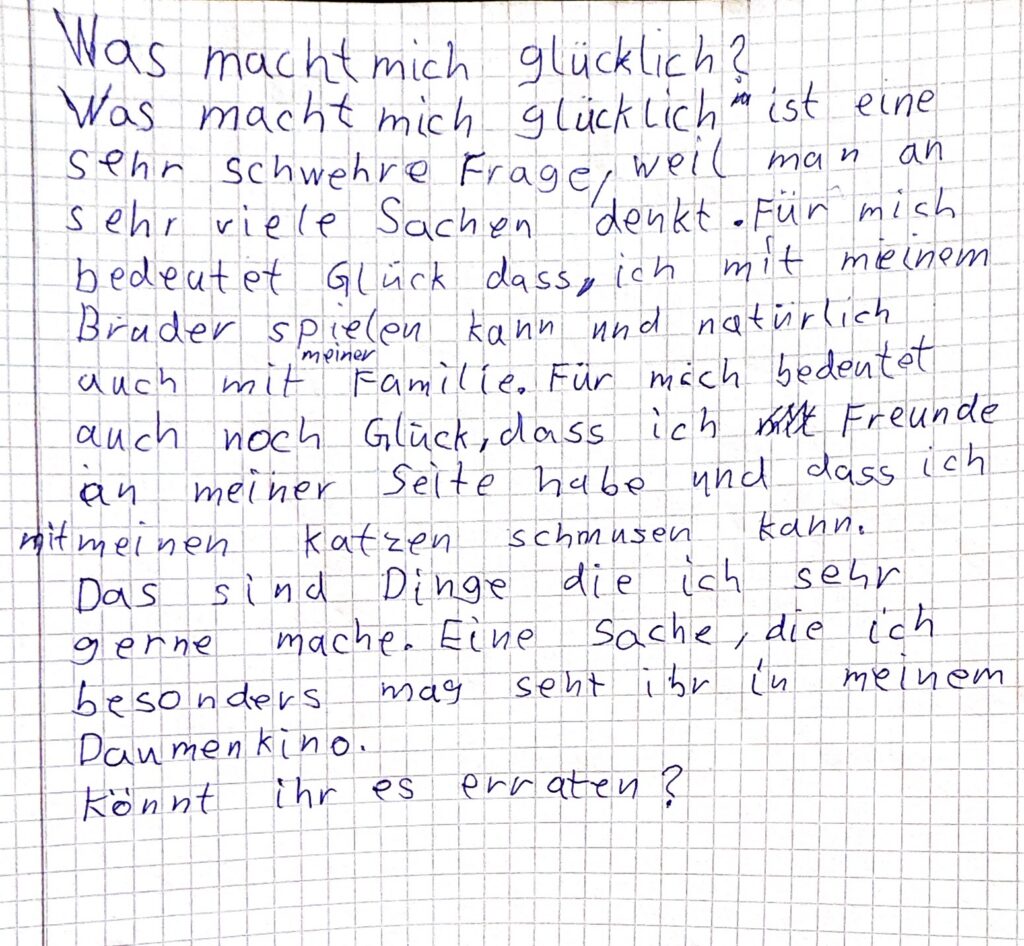 Was macht mich glücklich?
Was macht mich glücklich" ist eine
sehr schwehre Frage, weil man an
sehr viele Sachen denkt. Für mich
bedeutet Glück dass, ich mit meinem
Bruder spielen kann und natürlich
auch mit meiner Familie. Für mich bedeutet
auch noch Glück, dass ich Freunde
an meiner Seite habe und dass ich
mit meinen Katzen schmusen kann.
Das sind Dinge die ich sehr
gerne mache. Eine Sache, die ich
besonders mag seht ihr in meinem
Daumenkino.
Könnt ihr es erraten?